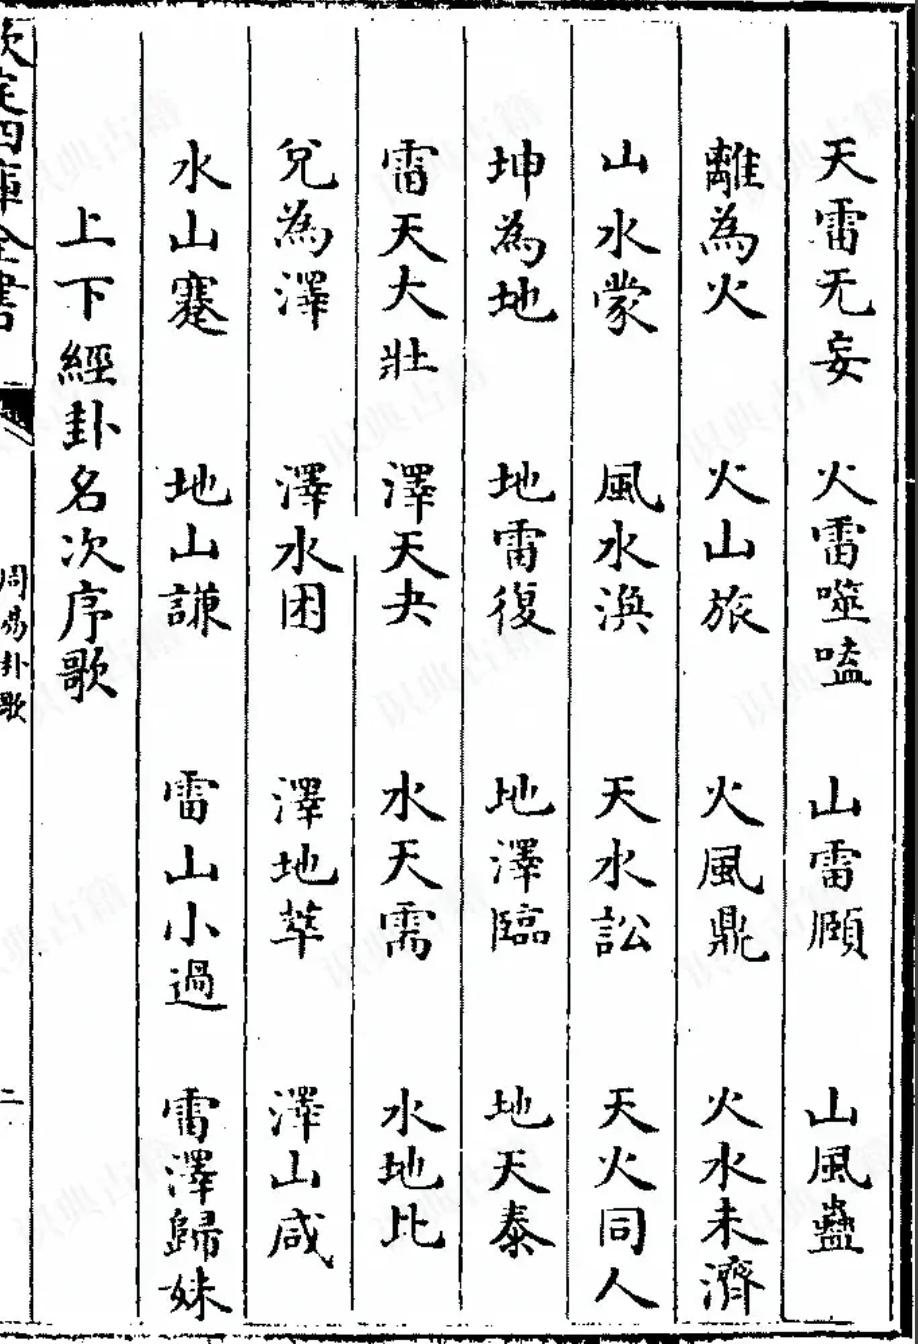 天雷无妄 火雷噬嗑 山雷頤 山風蠱
離為火 火山旅 火風鼎 火水未濟
山水蒙 風水渙 天水訟 天火同人
坤為地 地雷復 地澤臨 地天泰
雷天大壯 澤天夬 水天需 水地比
兌為澤 澤水困 澤地萃 澤山咸
水山蹇 地山謙 雷山小過 雷澤歸妹
上下經卦名次序歌
欽定四庫全書 周易卦歌 二